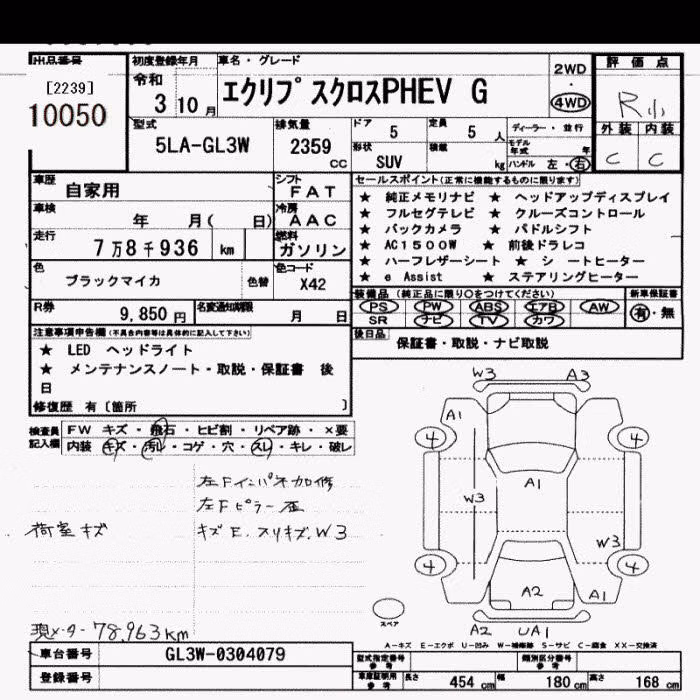 出品番号
[2239]
10050
初度登録年月
令和
3 10 月
車名・グレード
エクリプスクロスPHEV G
2WD
・
4WD
評価点
R小
外装 内装
C C
型式
5LA-GL3W
排気量
2359
cc
ドア 5
定員 5 人
形状 SUV
積載 kg
ディーラー・並行
モデル年式 年
ハンドル 左・右
車歴 自家用
シフト FAT
車検 年 月( 日)
冷房 AAC
走行 7万8千936 km
燃料 ガソリン
色 ブラックマイカ 色替
色コード X42
R券 9,850 円
名変通知期限 月 日
セールスポイント(正常に機能するものに限ります)
★ 純正メモリナビ ★ ヘッドアップディスプレイ
★ フルセグテレビ ★ クルーズコントロール
★ バックカメラ ★ パドルシフト
★ AC1500W ★ 前後ドラレコ
★ ハーフレザーシート ★ シートヒーター
★ e Assist ★ ステアリングヒーター
装備品 (純正品に限り○をつけてください)
新車保証書
PS PW ABS エアB AW
SR ナビ TV カワ
有・無
後日品
保証書・取説・ナビ取説
注意事項申告欄(不具合内容等は具体的に記入して下さい)
★ LED ヘッドライト
★ メンテナンスノート・取説・保証書 後
日
修復歴 有 [箇所 ]
検査員
記入欄
FW キズ・飛石・ヒビ割・リペア跡・×要
内装 キズ・汚れ・コゲ・穴・スレ・キレ・破レ
左Fインパネ加修
左Fピラー歪
荷室キズ
キズE.スリキズ.W3
現メーター78,963km
W3 A3
A1
4 4
A1
W3
W3
4 4
A2 A1
A2 UA1
スペア
A-キズ E-エクボ U-凹み W-補修跡 S-サビ C-腐食 XX-交換済
車台番号 GL3W-0304079
登録番号
型式指定番号 参考
類別区分番号 参考
車庫証明用 参考
長さ 454 cm
幅 180 cm
高さ 168 cm